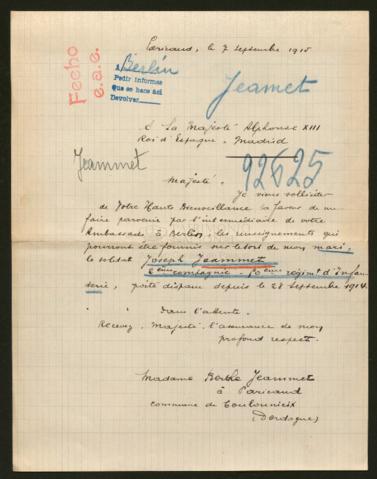 Paricaud, le 7 Septembre 1915
Fecho
e.a.e.
A Berlín
Pedir informes
que se hace aci
Devolver
Jeamet
A Sa Majesté Alphonse XIII
Roi d'Espagne. Madrid
Jeammet
92625
Majesté.
Je viens solliciter
de Votre Haute Bienveillance la faveur de me
faire parvenir par l'intermédiaire de votre
Ambassade à Berlin, les renseignements qui
pourront être fournis sur le sort de mon mari,
le soldat Joseph Jeammet
compagnie régiment d'Infan
terie, porté disparu depuis le 28 Septembre 1914.
Dans l'attente.
Recevez, Majesté, l'assurance de mon
profond respect.
Madame Berthe Jeammet
à Paricaud
commune de Coulounieix
(Dordogne)